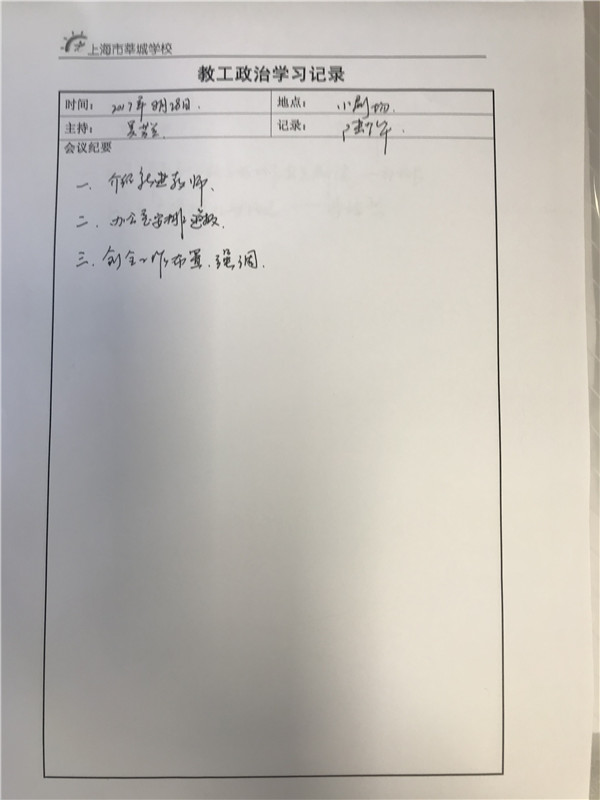 上海市莘城学校
教工政治学习记录
时间： 2017年8月28日. 地点： 小剧场.
主持： 吴 记录： 陆
会议纪要
一. 介绍新进教师.
二. 办公室安排
三. 创全工作布置、强调.